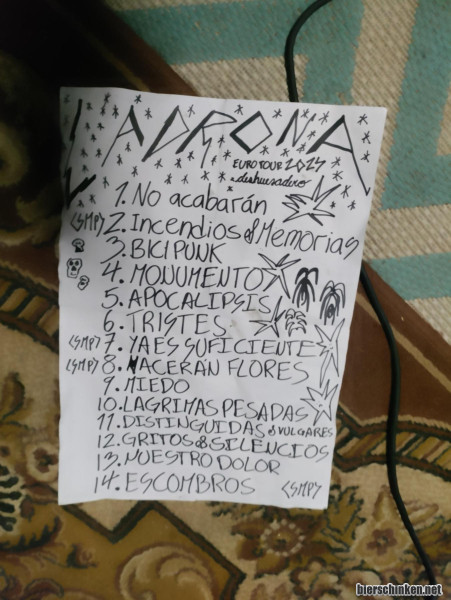 LADRONA
EUROTOUR 2024
deshuesadero
1. No acabarán
(SMP) 2. Incendios & Memorias
3. BICIPUNK
4. MONUMENTO
5. APOCALIPSIS
6. TRISTES
(SMP) 7. YA ES SUFICIENTE
(SMP) 8. NACERÁN FLORES
9. MIEDO
10. LAGRIMAS PESADAS
11. DISTINGUIDAS & VULGARES
12. GRITOS & SILENCIOS
13. NUESTRO DOLOR
14. ESCOMBROS (SMP)
bierschinken.net